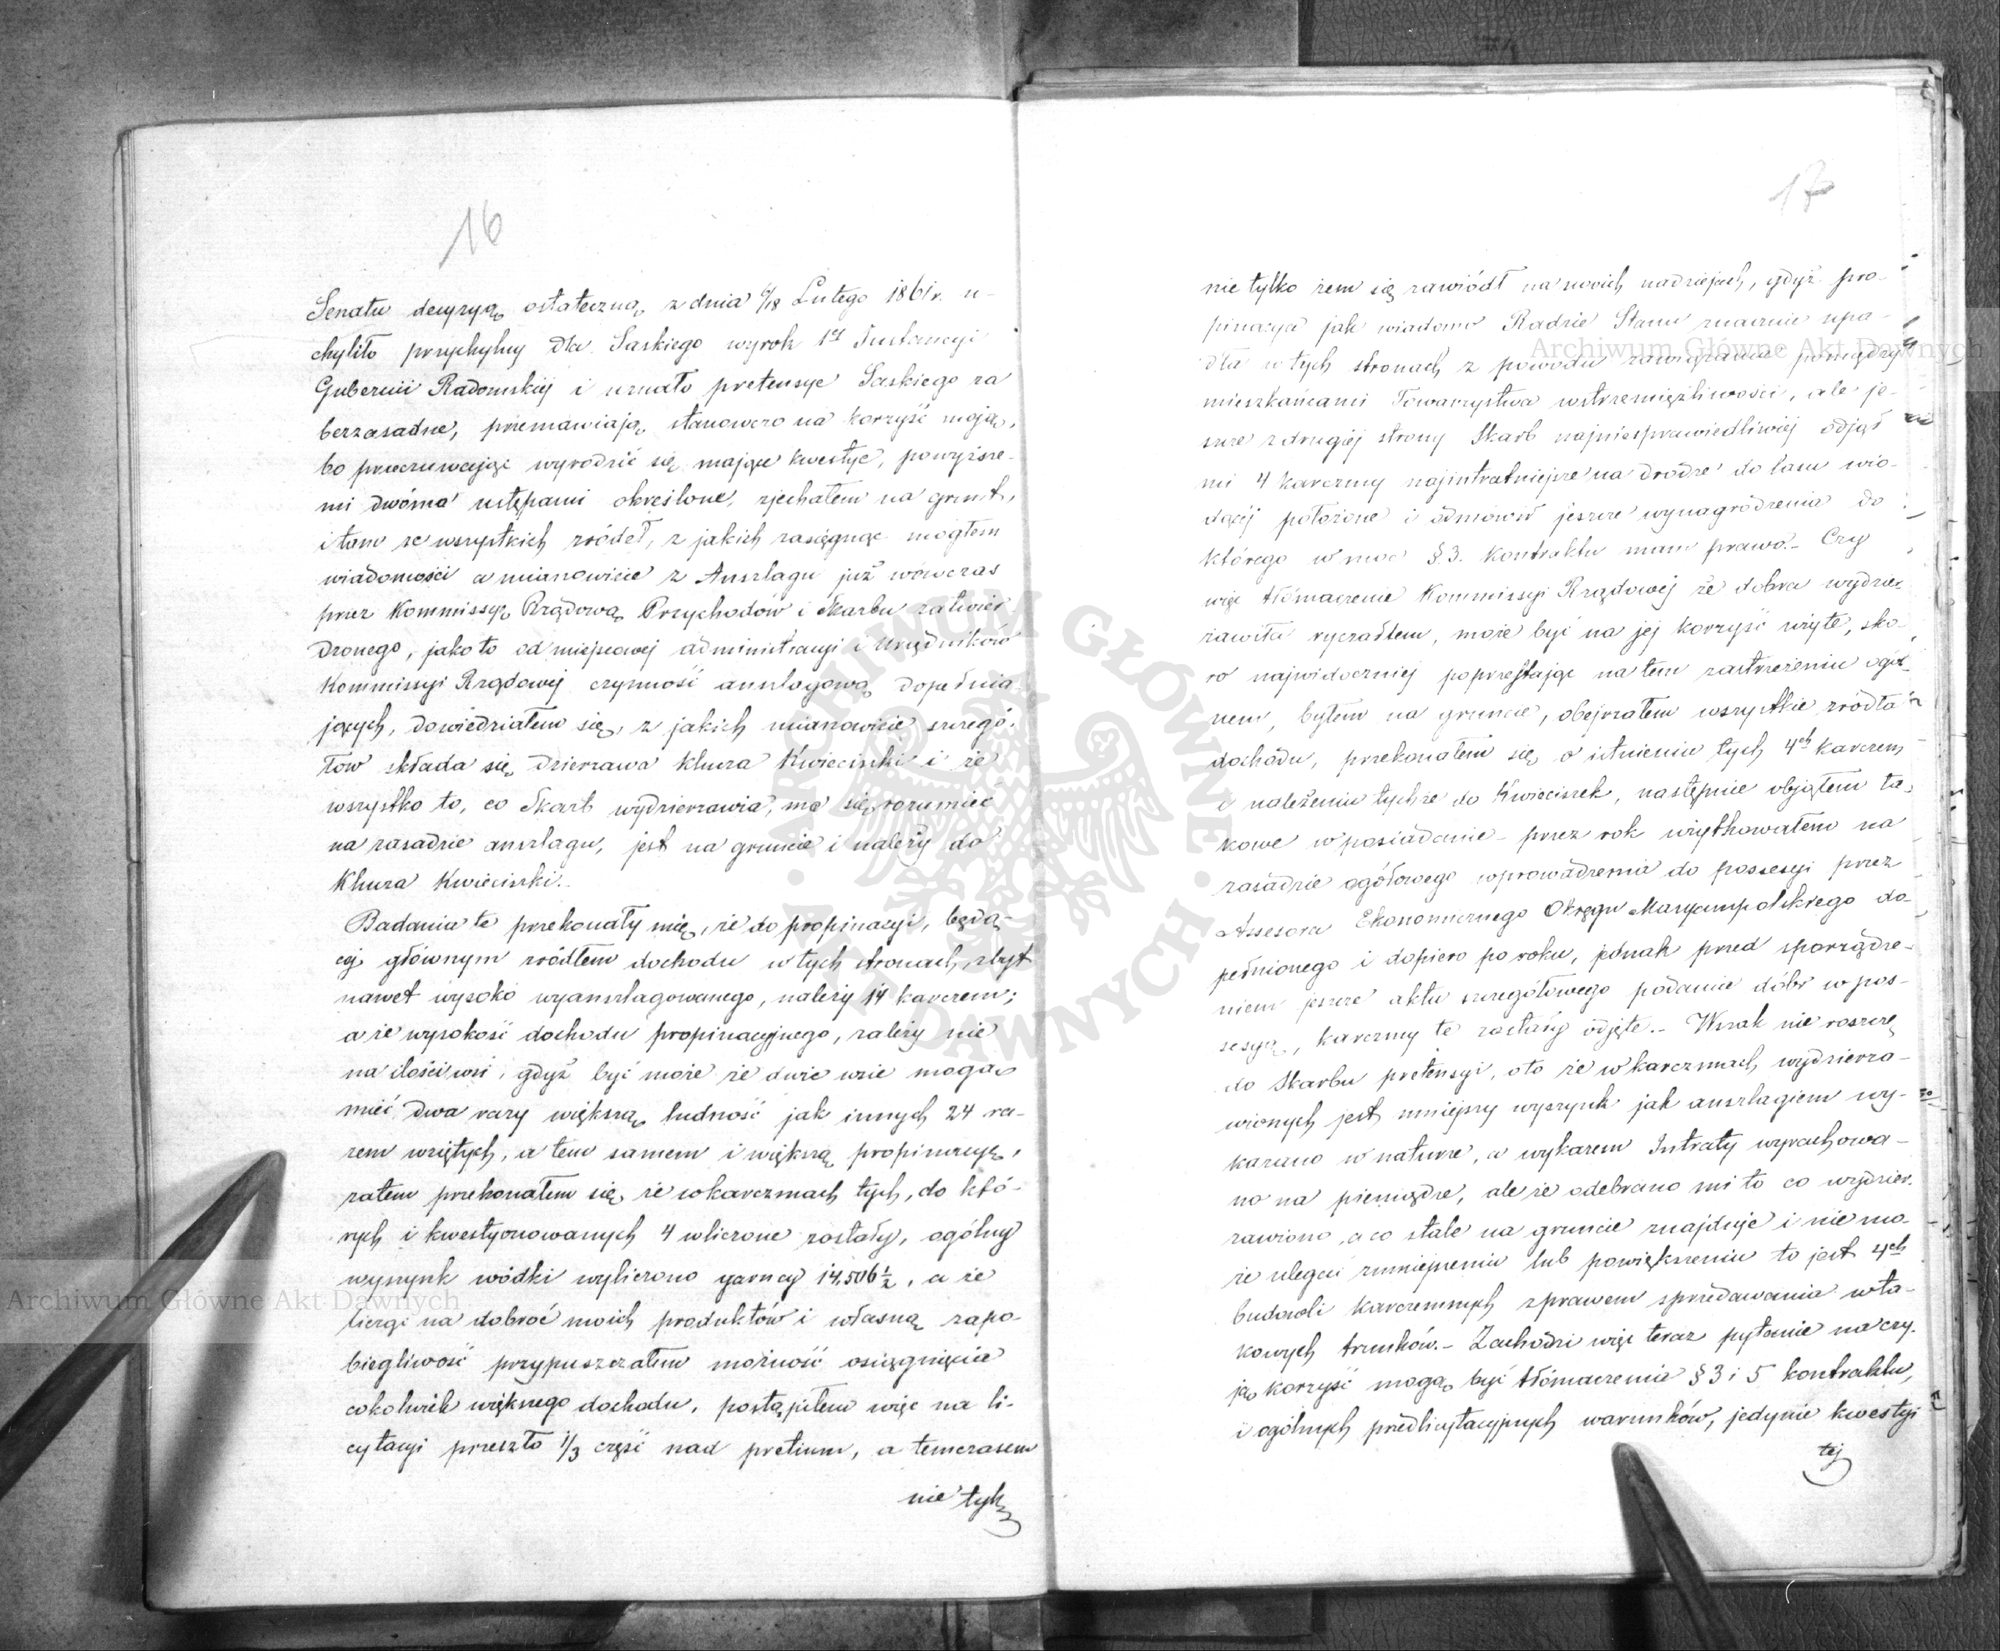 16
Senatu decyzyą ostateczną z dnia 6/18 Lutego 1861 r. u-
chyliło przychylny dla Saskiego wyrok 1ej Instancyi
Gubernii Radomskiej i uznało pretensye Saskiego za
bezzasadne, przemawiają stanowczo na korzyść moją,
bo przeczuwając wyrodzić się mające kwestye, powyższe-
mi dwóma ustępami określone, zjechałem na grunt,
i tam ze wszystkich źródeł, z jakich zasięgnąć mogłem
wiadomości a mianowicie z Anszlagu już wówczas
przez Kommissyę Rządową Przychodów i Skarbu zatwier-
dzonego, jako to od miejscowej administracyi i Urzędników
Kommissyi Rządowej czynność anszlagową dopełnia-
jących, dowiedziałem się, z jakich mianowicie szczegó-
łów składa się dzierzawa klucza Kwieciszki i że
wszystko to, co Skarb wydzierzawia, ma się rozumieć
na zasadzie anszlagu, jest na gruncie i należy do
Klucza Kwieciszki.
Badania te przekonały mię, że do propinacyi, będą-
cej głównym źródłem dochodu w tych stronach, zbyt
nawet wysoko wyanszlagowanego, należy 14 karczem;
a że wysokość dochodu propinacyjnego, zależy nie
na ilości wsi, gdyż być może że dwie wsie mogą
mieć dwa razy większą ludność jak innych 24 ra-
zem wziętych, a tem samem i większą propinacyę,
zatem przekonałem się, że w karczmach tych, do któ-
rych i kwestyonowanych 4 wliczone zostały, ogólny
wyszynk wódki wyliczono garncy 14,506 1/2, a że
licząc na dobroć moich produktów i własną zapo-
biegliwość przypuszczałem możność osiągnięcia
cokolwiek większego dochodu, postąpiłem więc na li-
cytacyi przeszło 1/3 część nad pretium, a temczasem
nie tylk
17
nie tylko żem się zawiódł na swoich nadziejach, gdyż pro-
pinacya jak wiadomo Radzie Stanu znacznie upa-
dła w tych stronach z powodu zawiązania pomiędzy
mieszkańcami Towarzystwa wstrzemięźliwości, ale je-
szcze z drugiej strony Skarb najniesprawiedliwiej odjął
mi 4 karczmy najintratniejsze na drodze do lasu wio-
dącej położone i odmówił jeszcze wynagrodzenia do
którego w moc § 3. kontraktu mam prawo.- Czy
więc tłómaczenie Kommissyi Rządowej że dobra wydzier-
żawiła ryczałtem, może być na jej korzyść użyte, sko-
ro najwidoczniej poprzestając na tem zastrzeżeniu ogól-
nem, byłem na gruncie, obejrzałem wszystkie źródła
dochodu, przekonałem się o istnieniu tych 4ch karczem
i należeniu tychże do Kwieciszek, następnie objąłem ta-
kowe w posiadanie - przez rok użytkowałem na
zasadzie ogółowego wprowadzenia do possesyi przez
Assesora Ekonomicznego Okręgu Maryampolskiego do-
pełnionego i dopiero po roku, jednak przed sporządze-
niem jeszcze aktu szczegółowego podania dóbr w pos-
sesyą, karczmy te zostały odjęte.- Wszak nie roszczę
do Skarbu pretensyi, oto że w karczmach wydzierza-
wionych jest mniejszy wyszynk jak anszlagiem wy-
kazano w naturze, a wykazem Intraty wyrachowa-
no na pieniądze, ale że odebrano mi to co wydzier-
zawiono, a co stale na gruncie znajduje i nie mo-
że ulegać zmniejszeniu lub powiększeniu to jest 4ch
budowli karczemnych z prawem sprzedawania w ta-
kowych trunków.- Zachodzi więc teraz pytanie na czy-
ją korzyść mogą być tłómaczenia § 3 i 5 kontraktu,
i ogólnych przedlicytacyjnych warunków, jedynie kwestyi
tej
Archiwum Główne Akt Dawnych
Archiwum Główne Akt Dawnych
ARCHIWUM GŁÓWNE AKT DAWNYCH